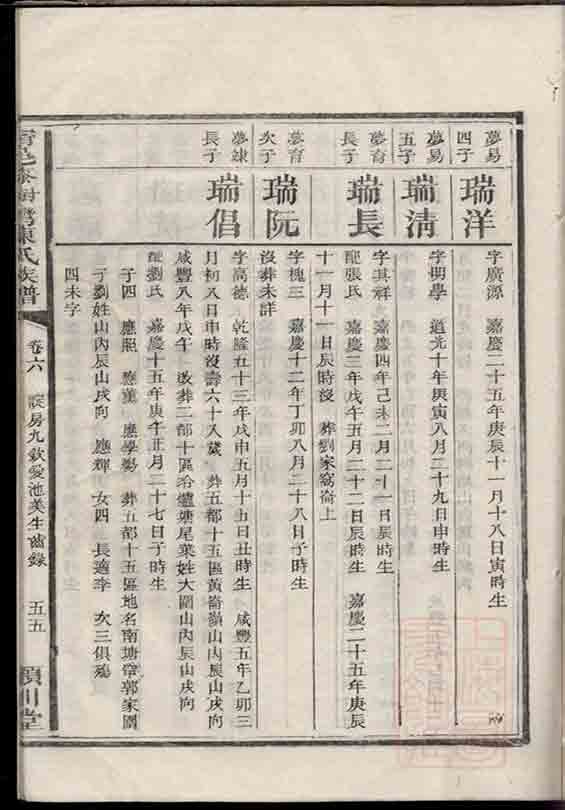 夢易四子
瑞洋
字廣源 嘉慶二十五年庚辰十一月十八日寅時生
夢易五子
瑞清
字明學 道光十年庚寅八月二十九日申時生
夢育長子
瑞長
字其祥 嘉慶四年己未二月二十一日辰時生
配張氏 嘉慶三年戊午五月二十二日辰時生 嘉慶二十五年庚辰
十一月十一日辰時沒 葬劉家窩崙上
夢育次子
瑞阮
字槐三 嘉慶十二年丁卯八月二十八日子時生
沒葬未詳
夢竦長子
瑞倡
字高德 乾隆五十三年戊申五月十五日丑時生 咸豐五年乙卯三
月初八日申時沒壽六十八歲 葬五都十五區黃崙嶺山內辰山戌向
咸豐八年戊午 改葬二都十區冶爐塘尾葉姓大圍山內辰山戌向
配劉氏 嘉慶十五年庚午正月二十七日子時生
子四 應照 應薰 應學殤 葬五都十五區地名南塘帶郭家園
子劉姓山內辰山戌向 應輝 女四 長適李 次三俱殤
四未字
陳氏族譜
卷六
房九欽愛池美生齒錄
五五
潁川堂